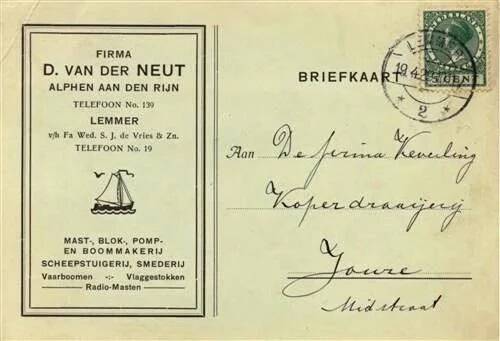 FIRMA
D. VAN DER NEUT
ALPHEN AAN DEN RIJN
TELEFOON No. 139
LEMMER
v/h Fa Wed. S. J. de Vries & Zn.
TELEFOON No. 19
MAST-, BLOK-, POMP-
EN BOOMMAKERIJ
SCHEEPSTUIGERIJ, SMEDERIJ
Vaarboomen -:- Vlaggestokken
Radio-Masten
BRIEFKAART
NEDERLAND
CENT
19.4.2
2
Aan De firma Keverling
Koperdraaijerij
Joure
Midstraat